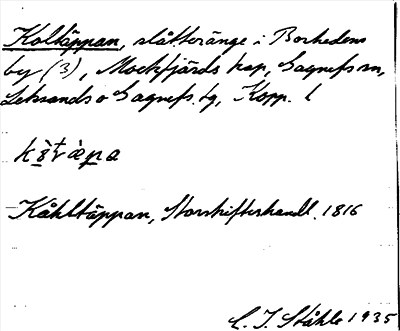 Koltäppan, slåtteränge i Borhedens
by (3), Mockfjärds kap, Gagnefs sn,
Leksands o Gagnefs tg, Kopp. l
Kåhltäppan, Storskifteshandl. 1816
C. I. Ståhle 1935